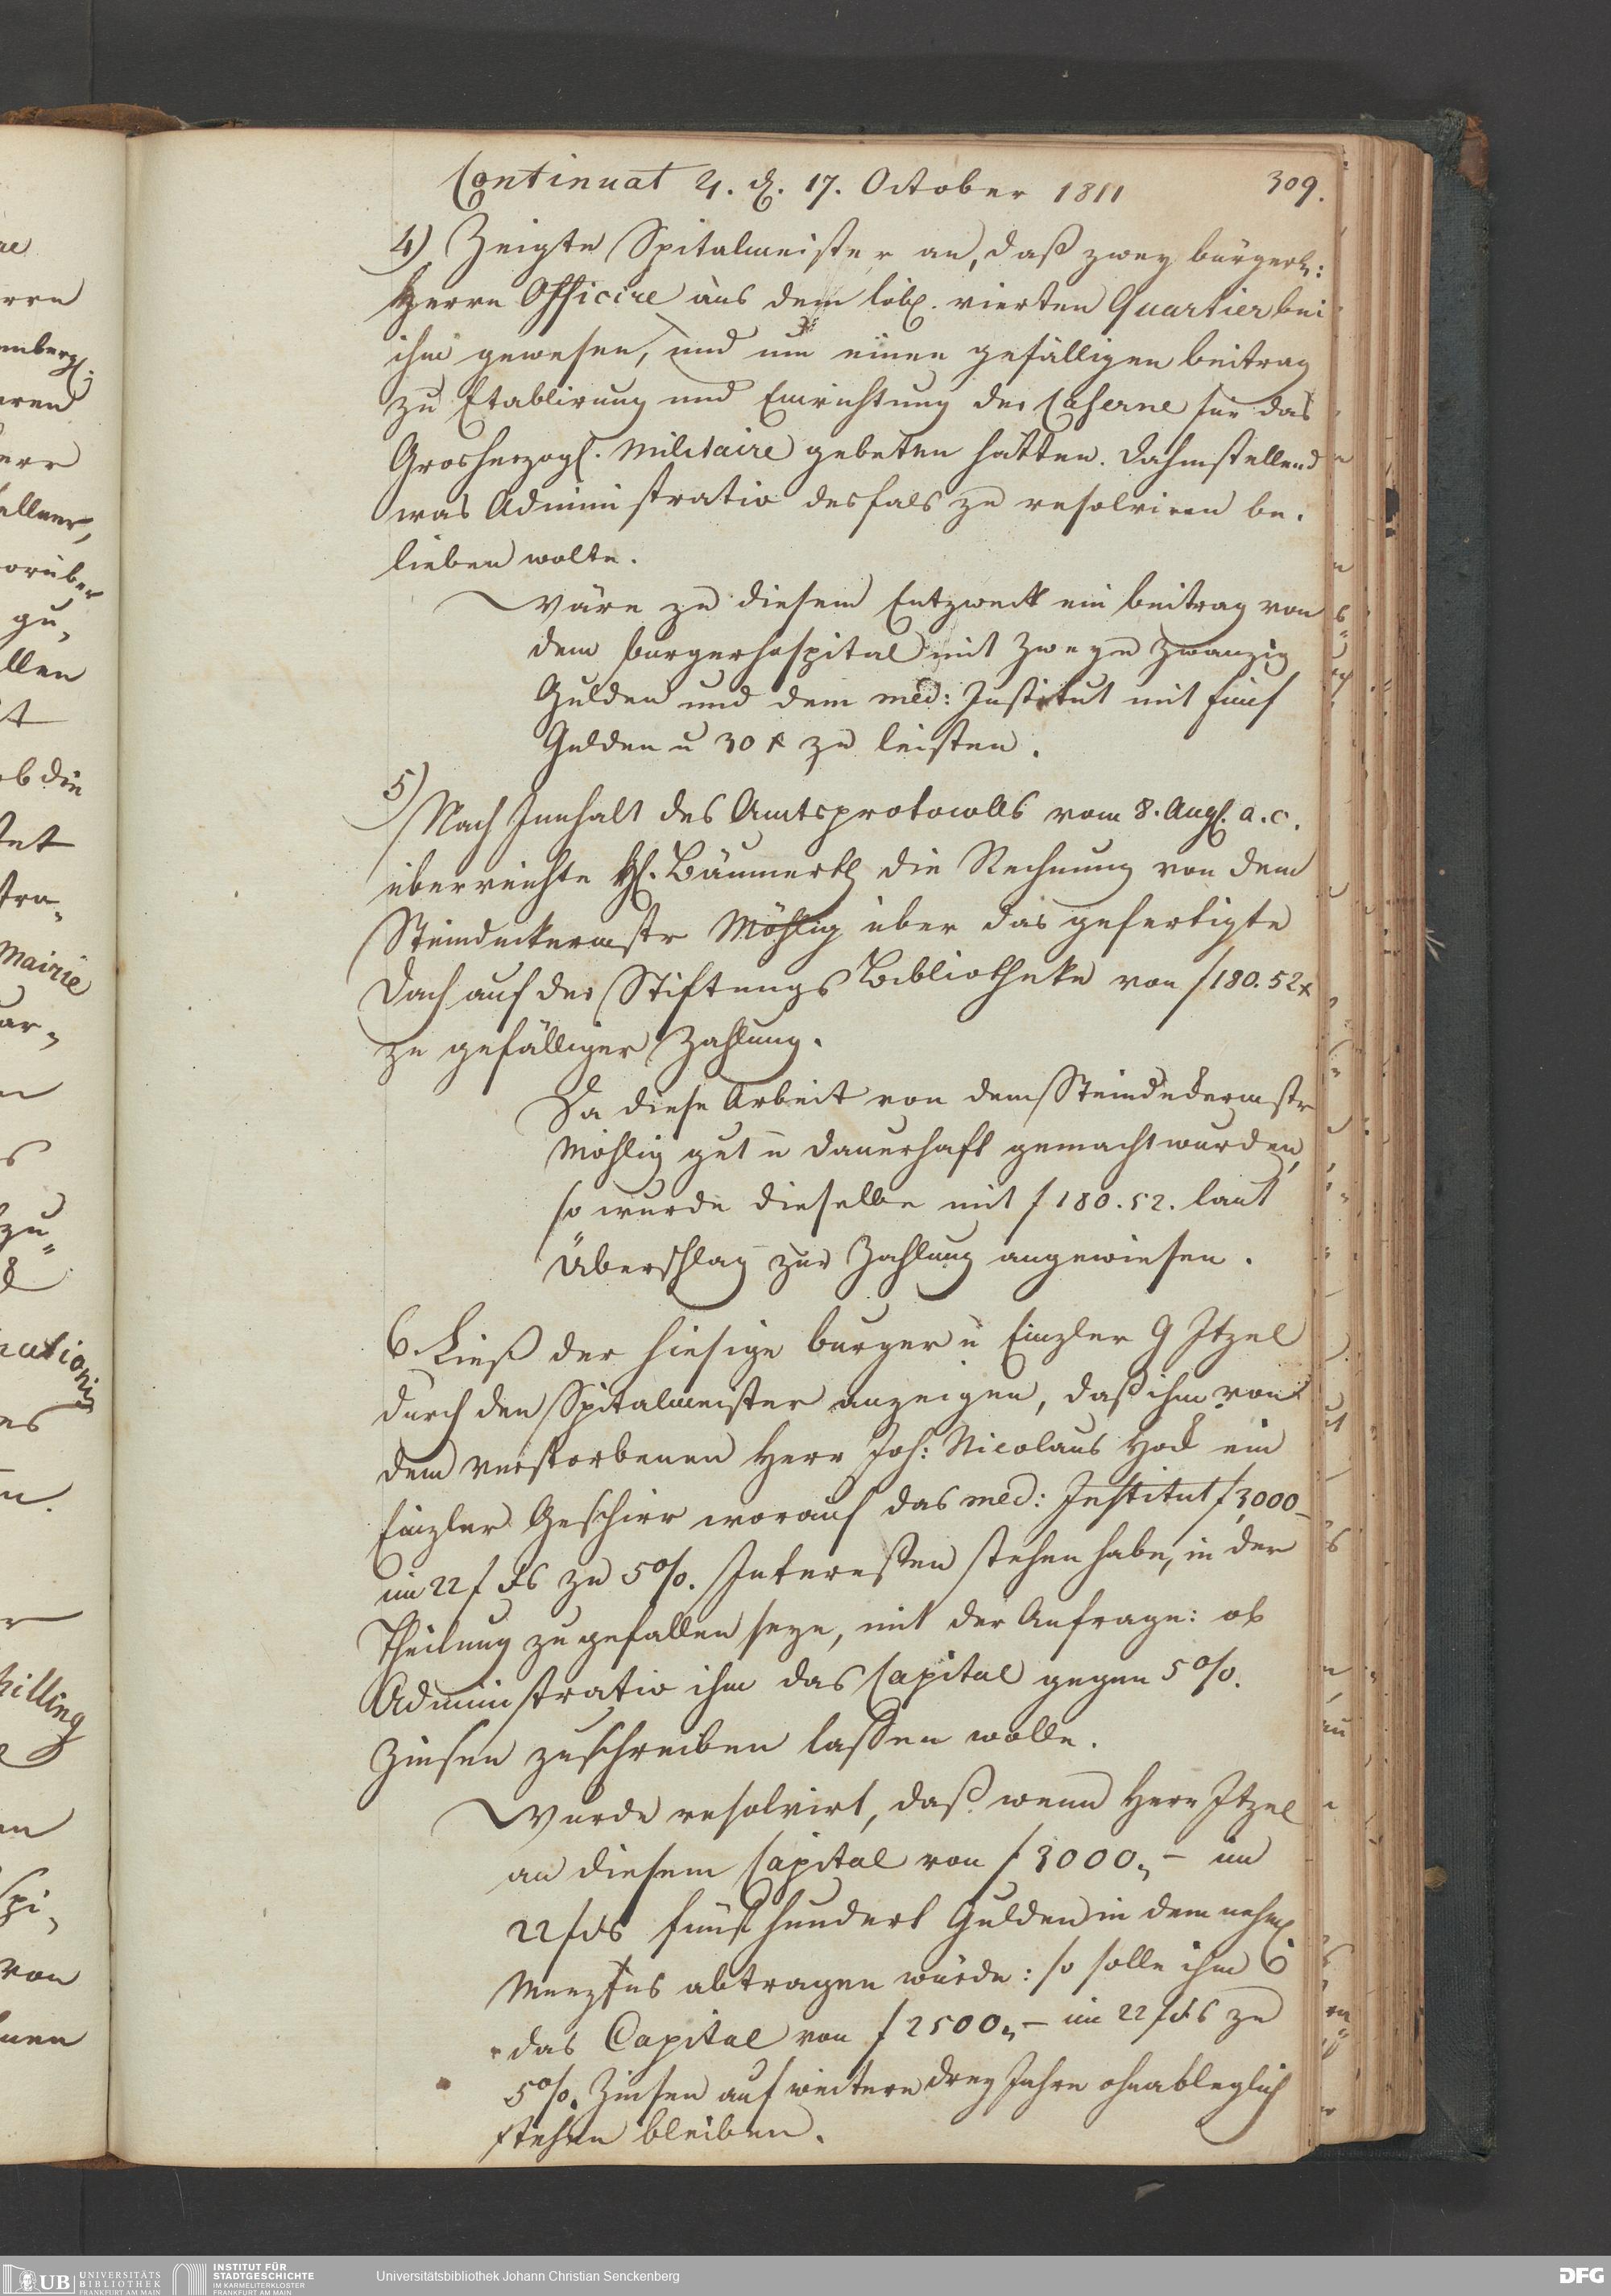 Continuat 4. d. 17. October 1811
309.
4) Zeigte Spitalmeister an, daß zwey bürgerl:
Herrn Officire aus dem löbl. vierten Quartier bei
ihm gewesen, und um einen gefälligen beitrag
zu Etablirung und Einrichtung der Caserne für das
Grosherzogl. Militaire gebeten hätten. Dahinstellend
was Administratio desfals zu resolviren be-
lieben wolte.
Wäre zu diesem Entzweck ein beitrag von
dem burgerhospital mit Zwey u Zwanzig
Gulden und dem med: Institut mit fünf
Gulden u 30 x zu leisten.
5) Nach Innhalt des Amtsprotocolls vom 8. Aug. a. c.
überreichte H. Bäumerth die Rechnung von dem
Steindeckermstr Möhlig über das gefertigte
Dach auf der Stiftungs Bibliotheke von f 180. 52 x
zu gefälliger Zahlung.
Da diese Arbeit von dem Steindeckermstr
Möhlig gut u dauerhaft gemacht wurden,
so wurde dieselbe mit f 180. 52. laut
Überschlag zur Zahlung angewiesen.
6. Ließ der hiesige burger u Einzler G Itzel
durch den Spitalmeister anzeigen, daß ihm von
dem verstorbenen Herr Joh: Nicolaus Hock ein
Einzler Geschirr worauf das med: Institut f 3000 –
im 22 f fs zu 5 %. Interessen stehen habe, in der
Theilung zugefallen seye, mit der Anfrage: ob
Administratio ihm das Capital gegen 5 %.
Zinsen zuschreiben lassen wolle.
Wurde resolvirt, daß wenn Herr Itzel
an diesem Capital von f 3000. – im
22 f fs fünf hundert Gulden in dem
abtragen würde: so solle ihm
das Capital von f 2500. – im 22 f fs zu
5 %. Zinsen auf weitere drey Jahre ohnableglich
stehen bleiben.
UB UNIVERSITÄTS BIBLIOTHEK FRANKFURT AM MAIN
INSTITUT FÜR STADTGESCHICHTE IM KARMELITERKLOSTER FRANKFURT AM MAIN
Universitätsbibliothek Johann Christian Senckenberg
DFG